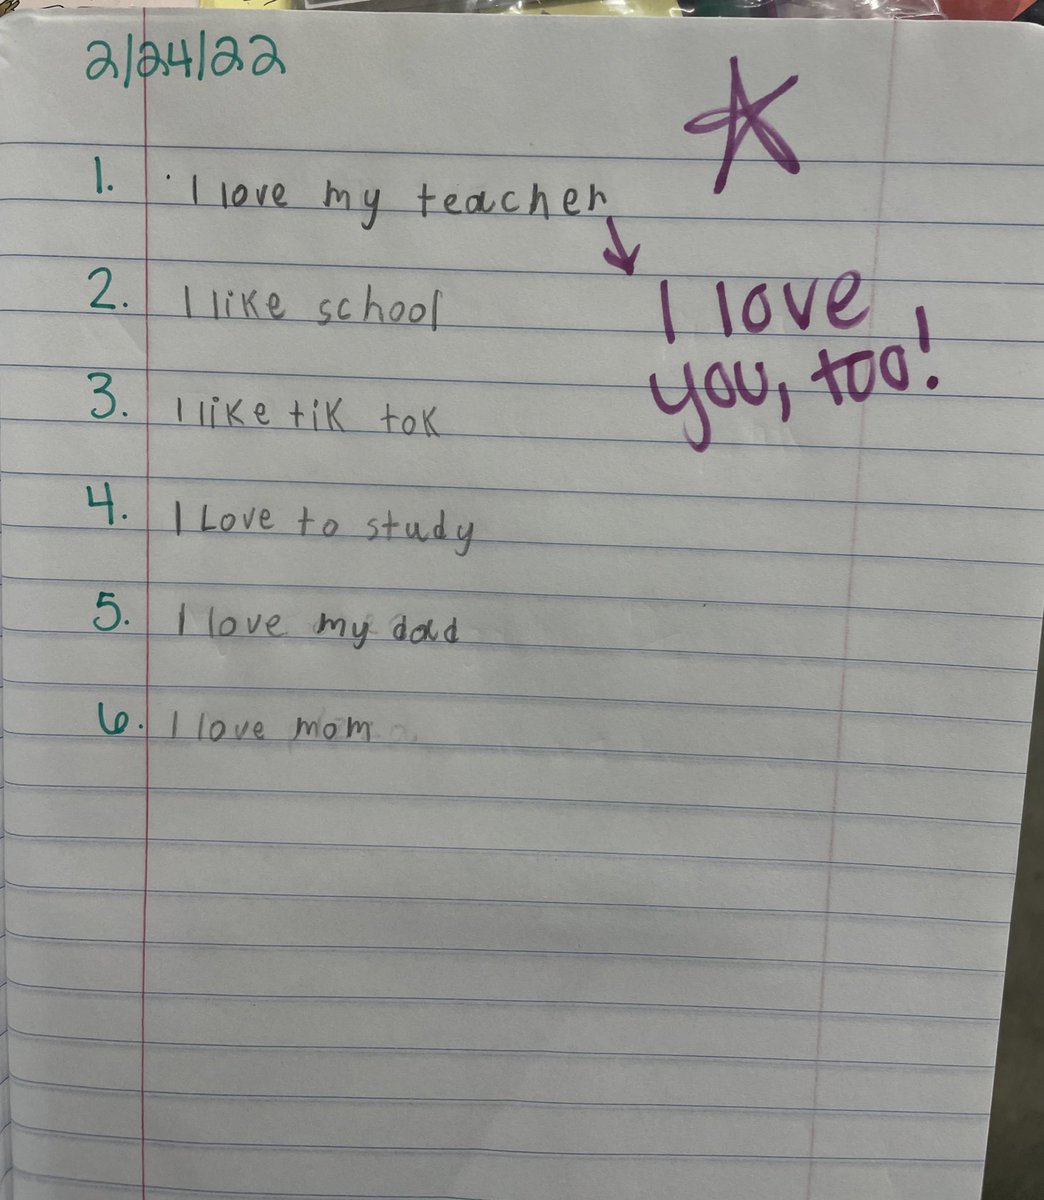 2/24/22
1. I love my teacher
I love
you, too!
2. I like school
3. I like tik tok
4. I Love to study
5. I love my dad
6. I love mom